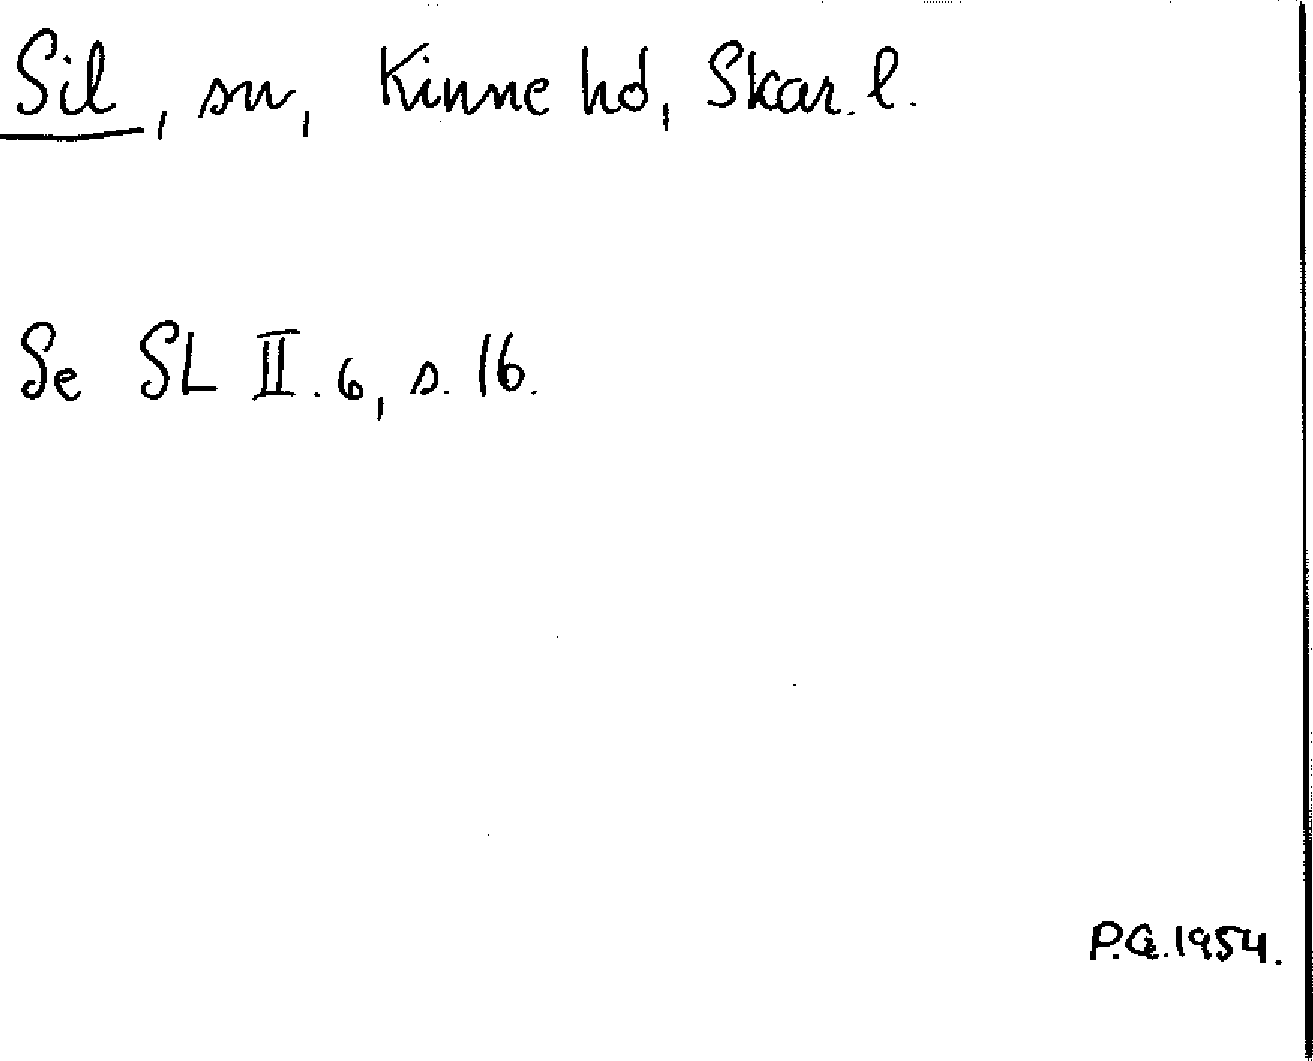 Sil, sn, Kinne hd, Skar. l.
Se SL II. 6, s. 16.
P.G. 1954.